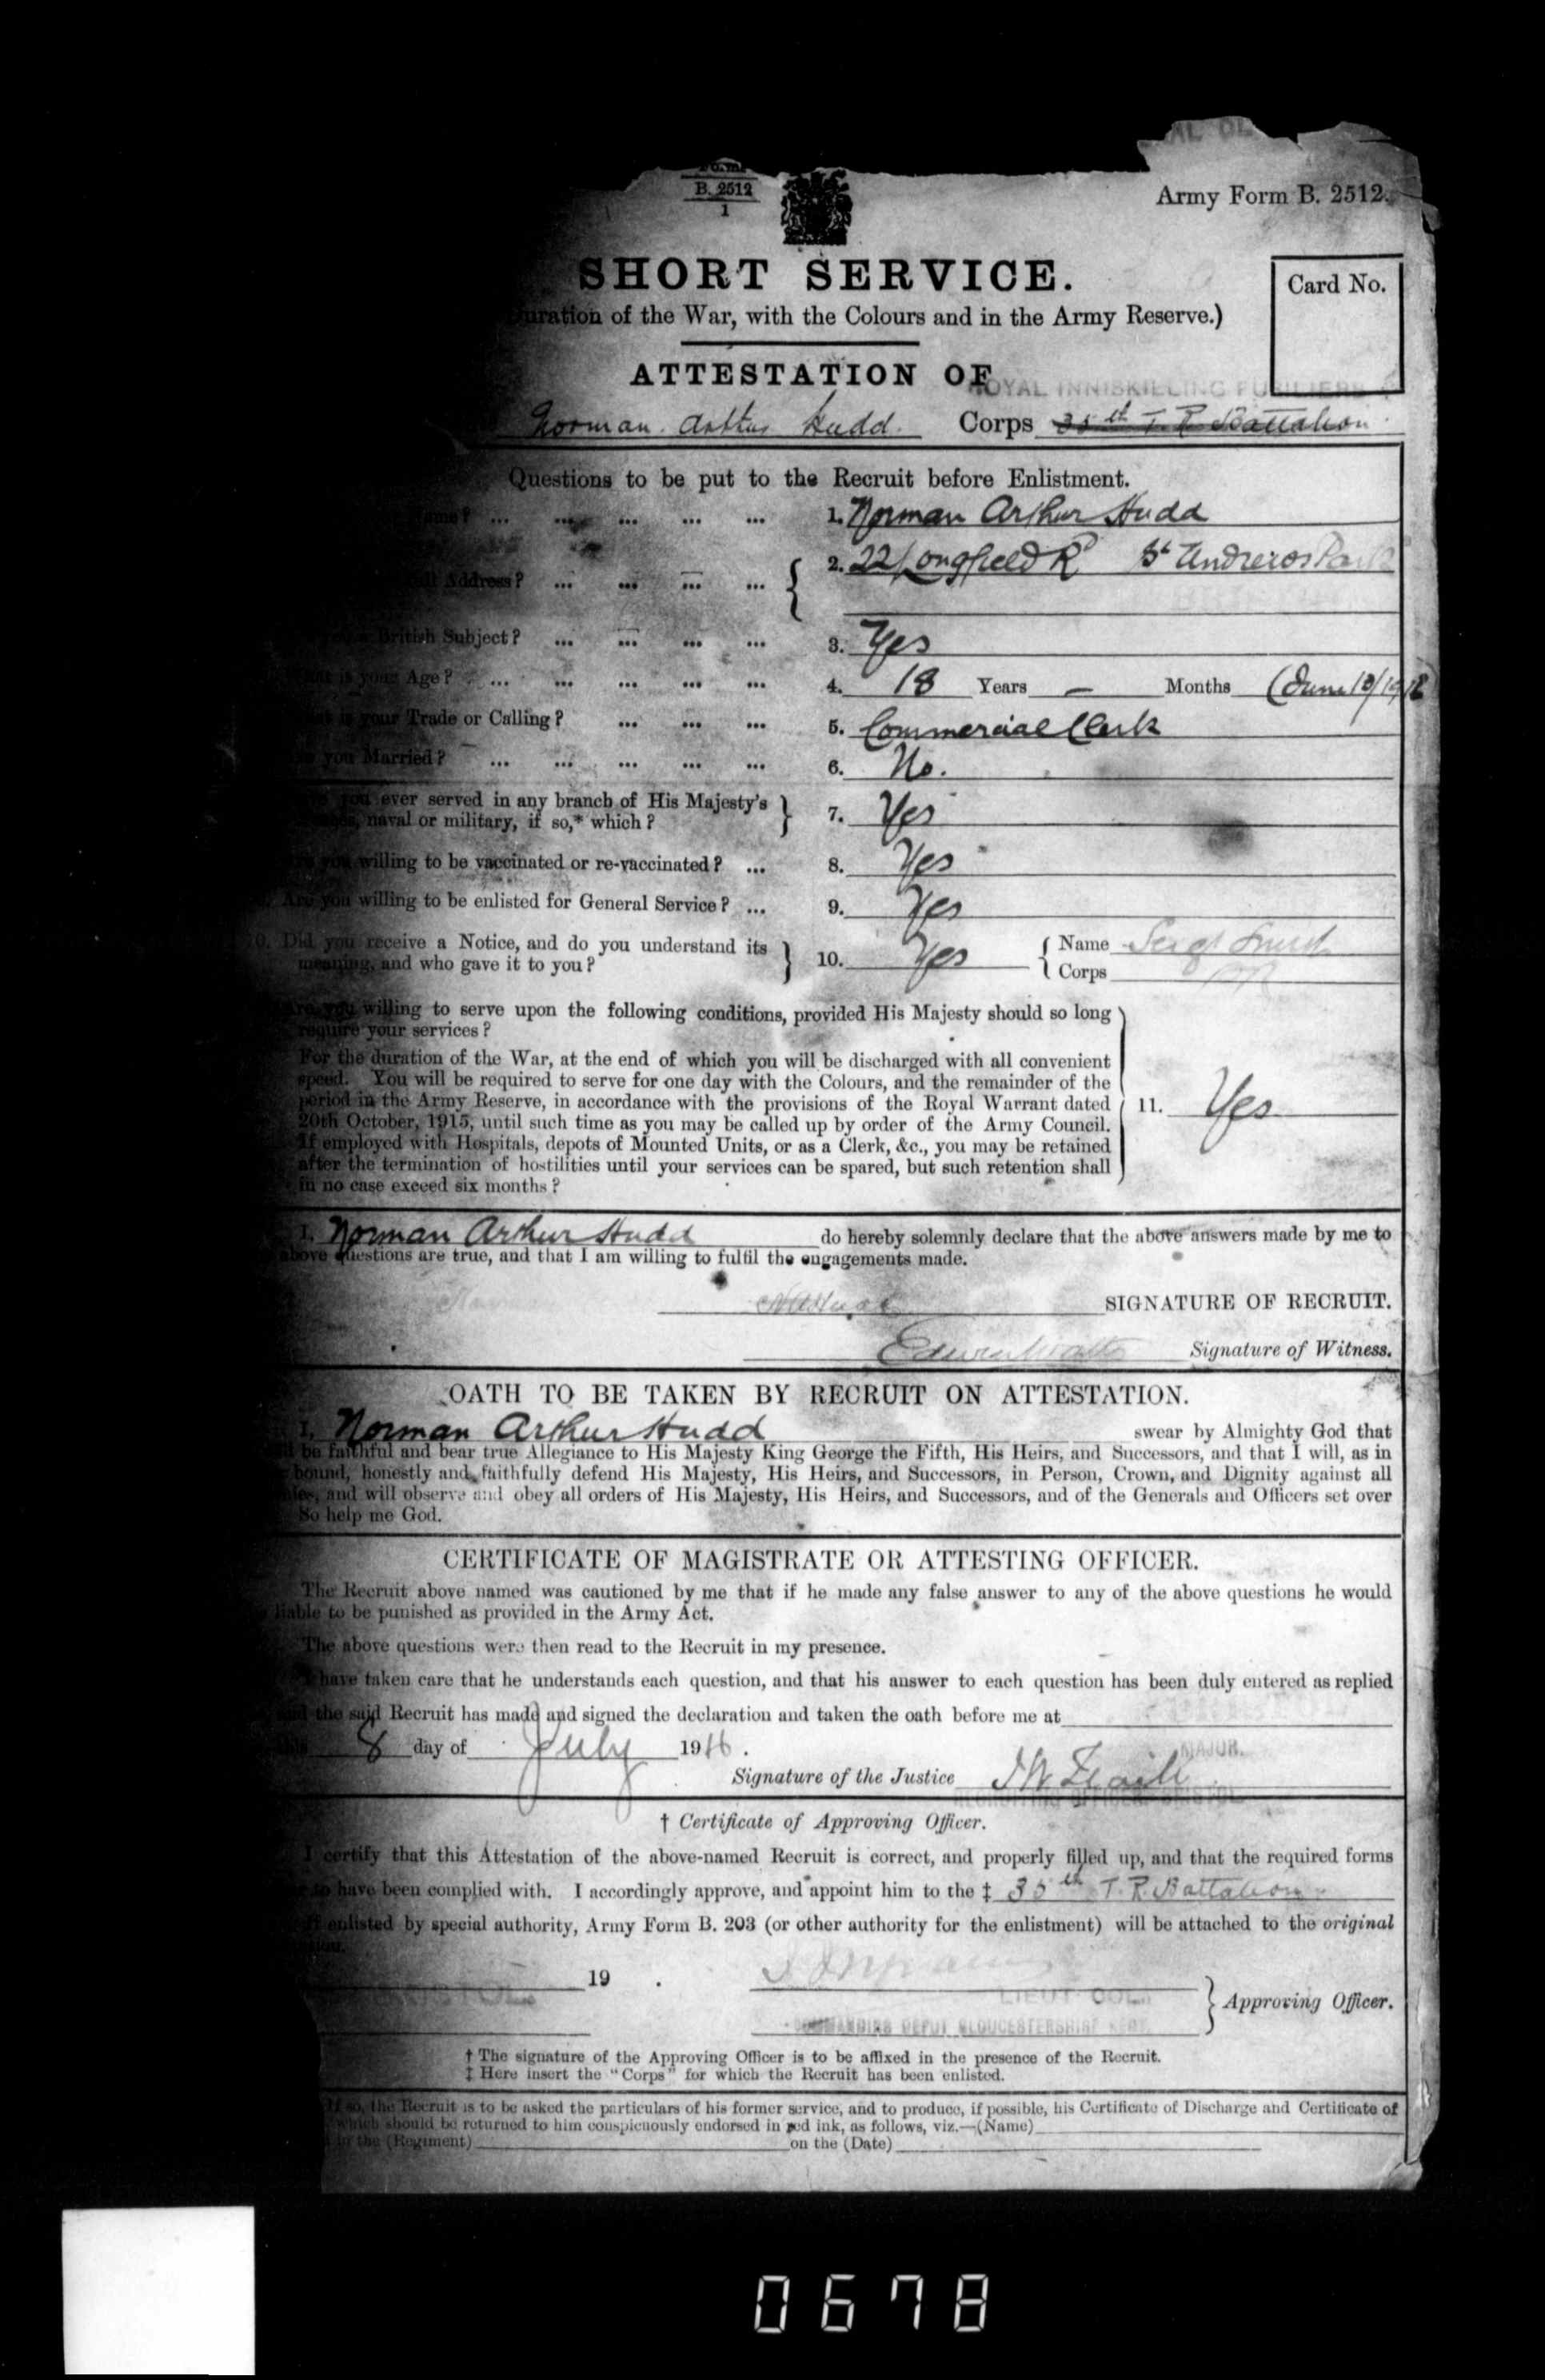 AL DE
B. 2512
1
Army Form B. 2512.
SHORT SERVICE.
Card No.
uration of the War, with the Colours and in the Army Reserve.)
ATTESTATION OF
ROYAL INNISKILLING FUSILIERS
Norman Arthur Hudd. Corps 35th T. R. Battalion
Questions to be put to the Recruit before Enlistment.
ame? ... ... ... ... ... 1. Norman Arthur Hudd
ull Address? ... ... ... ... 2. 22 Longfield Rd St Andrews Park
British Subject? ... ... ... ... 3. Yes
at is your Age? ... ... ... ... ... 4. 18 Years — Months (June 18/1916
at is your Trade or Calling? ... ... ... 5. Commercial Clerk
you Married? ... ... ... ... ... 6. No.
you ever served in any branch of His Majesty's
naval or military, if so,* which? 7. Yes
Are you willing to be vaccinated or re-vaccinated? ... 8. Yes
Are you willing to be enlisted for General Service? ... 9. Yes
0. Did you receive a Notice, and do you understand its
meaning, and who gave it to you? 10. Yes Name Sergt
Corps
Are you willing to serve upon the following conditions, provided His Majesty should so long
require your services?
For the duration of the War, at the end of which you will be discharged with all convenient
speed. You will be required to serve for one day with the Colours, and the remainder of the
period in the Army Reserve, in accordance with the provisions of the Royal Warrant dated
20th October, 1915, until such time as you may be called up by order of the Army Council.
If employed with Hospitals, depots of Mounted Units, or as a Clerk, &c., you may be retained
after the termination of hostilities until your services can be spared, but such retention shall
in no case exceed six months?
11. Yes
I, Norman Arthur Hudd do hereby solemnly declare that the above answers made by me to
above questions are true, and that I am willing to fulfil the engagements made.
SIGNATURE OF RECRUIT.
Signature of Witness.
OATH TO BE TAKEN BY RECRUIT ON ATTESTATION.
I, Norman Arthur Hudd swear by Almighty God that
be faithful and bear true Allegiance to His Majesty King George the Fifth, His Heirs, and Successors, and that I will, as in
bound, honestly and faithfully defend His Majesty, His Heirs, and Successors, in Person, Crown, and Dignity against all
and will observe and obey all orders of His Majesty, His Heirs, and Successors, and of the Generals and Officers set over
So help me God.
CERTIFICATE OF MAGISTRATE OR ATTESTING OFFICER.
The Recruit above named was cautioned by me that if he made any false answer to any of the above questions he would
liable to be punished as provided in the Army Act.
The above questions were then read to the Recruit in my presence.
I have taken care that he understands each question, and that his answer to each question has been duly entered as replied
the said Recruit has made and signed the declaration and taken the oath before me at
8 day of July 1916.
MAJOR.
Signature of the Justice
RECRUITING OFFICER BRISTOL
† Certificate of Approving Officer.
I certify that this Attestation of the above-named Recruit is correct, and properly filled up, and that the required forms
to have been complied with. I accordingly approve, and appoint him to the ‡ 35th T. R. Battalion
If enlisted by special authority, Army Form B. 203 (or other authority for the enlistment) will be attached to the original
19 .
LIEUT. COL.
Approving Officer.
COMMANDING DEPOT GLOUCESTERSHIRE REGT.
† The signature of the Approving Officer is to be affixed in the presence of the Recruit.
‡ Here insert the "Corps" for which the Recruit has been enlisted.
If so, the Recruit is to be asked the particulars of his former service, and to produce, if possible, his Certificate of Discharge and Certificate of
which should be returned to him conspicuously endorsed in red ink, as follows, viz.—(Name)
in the (Regiment) on the (Date)
0678